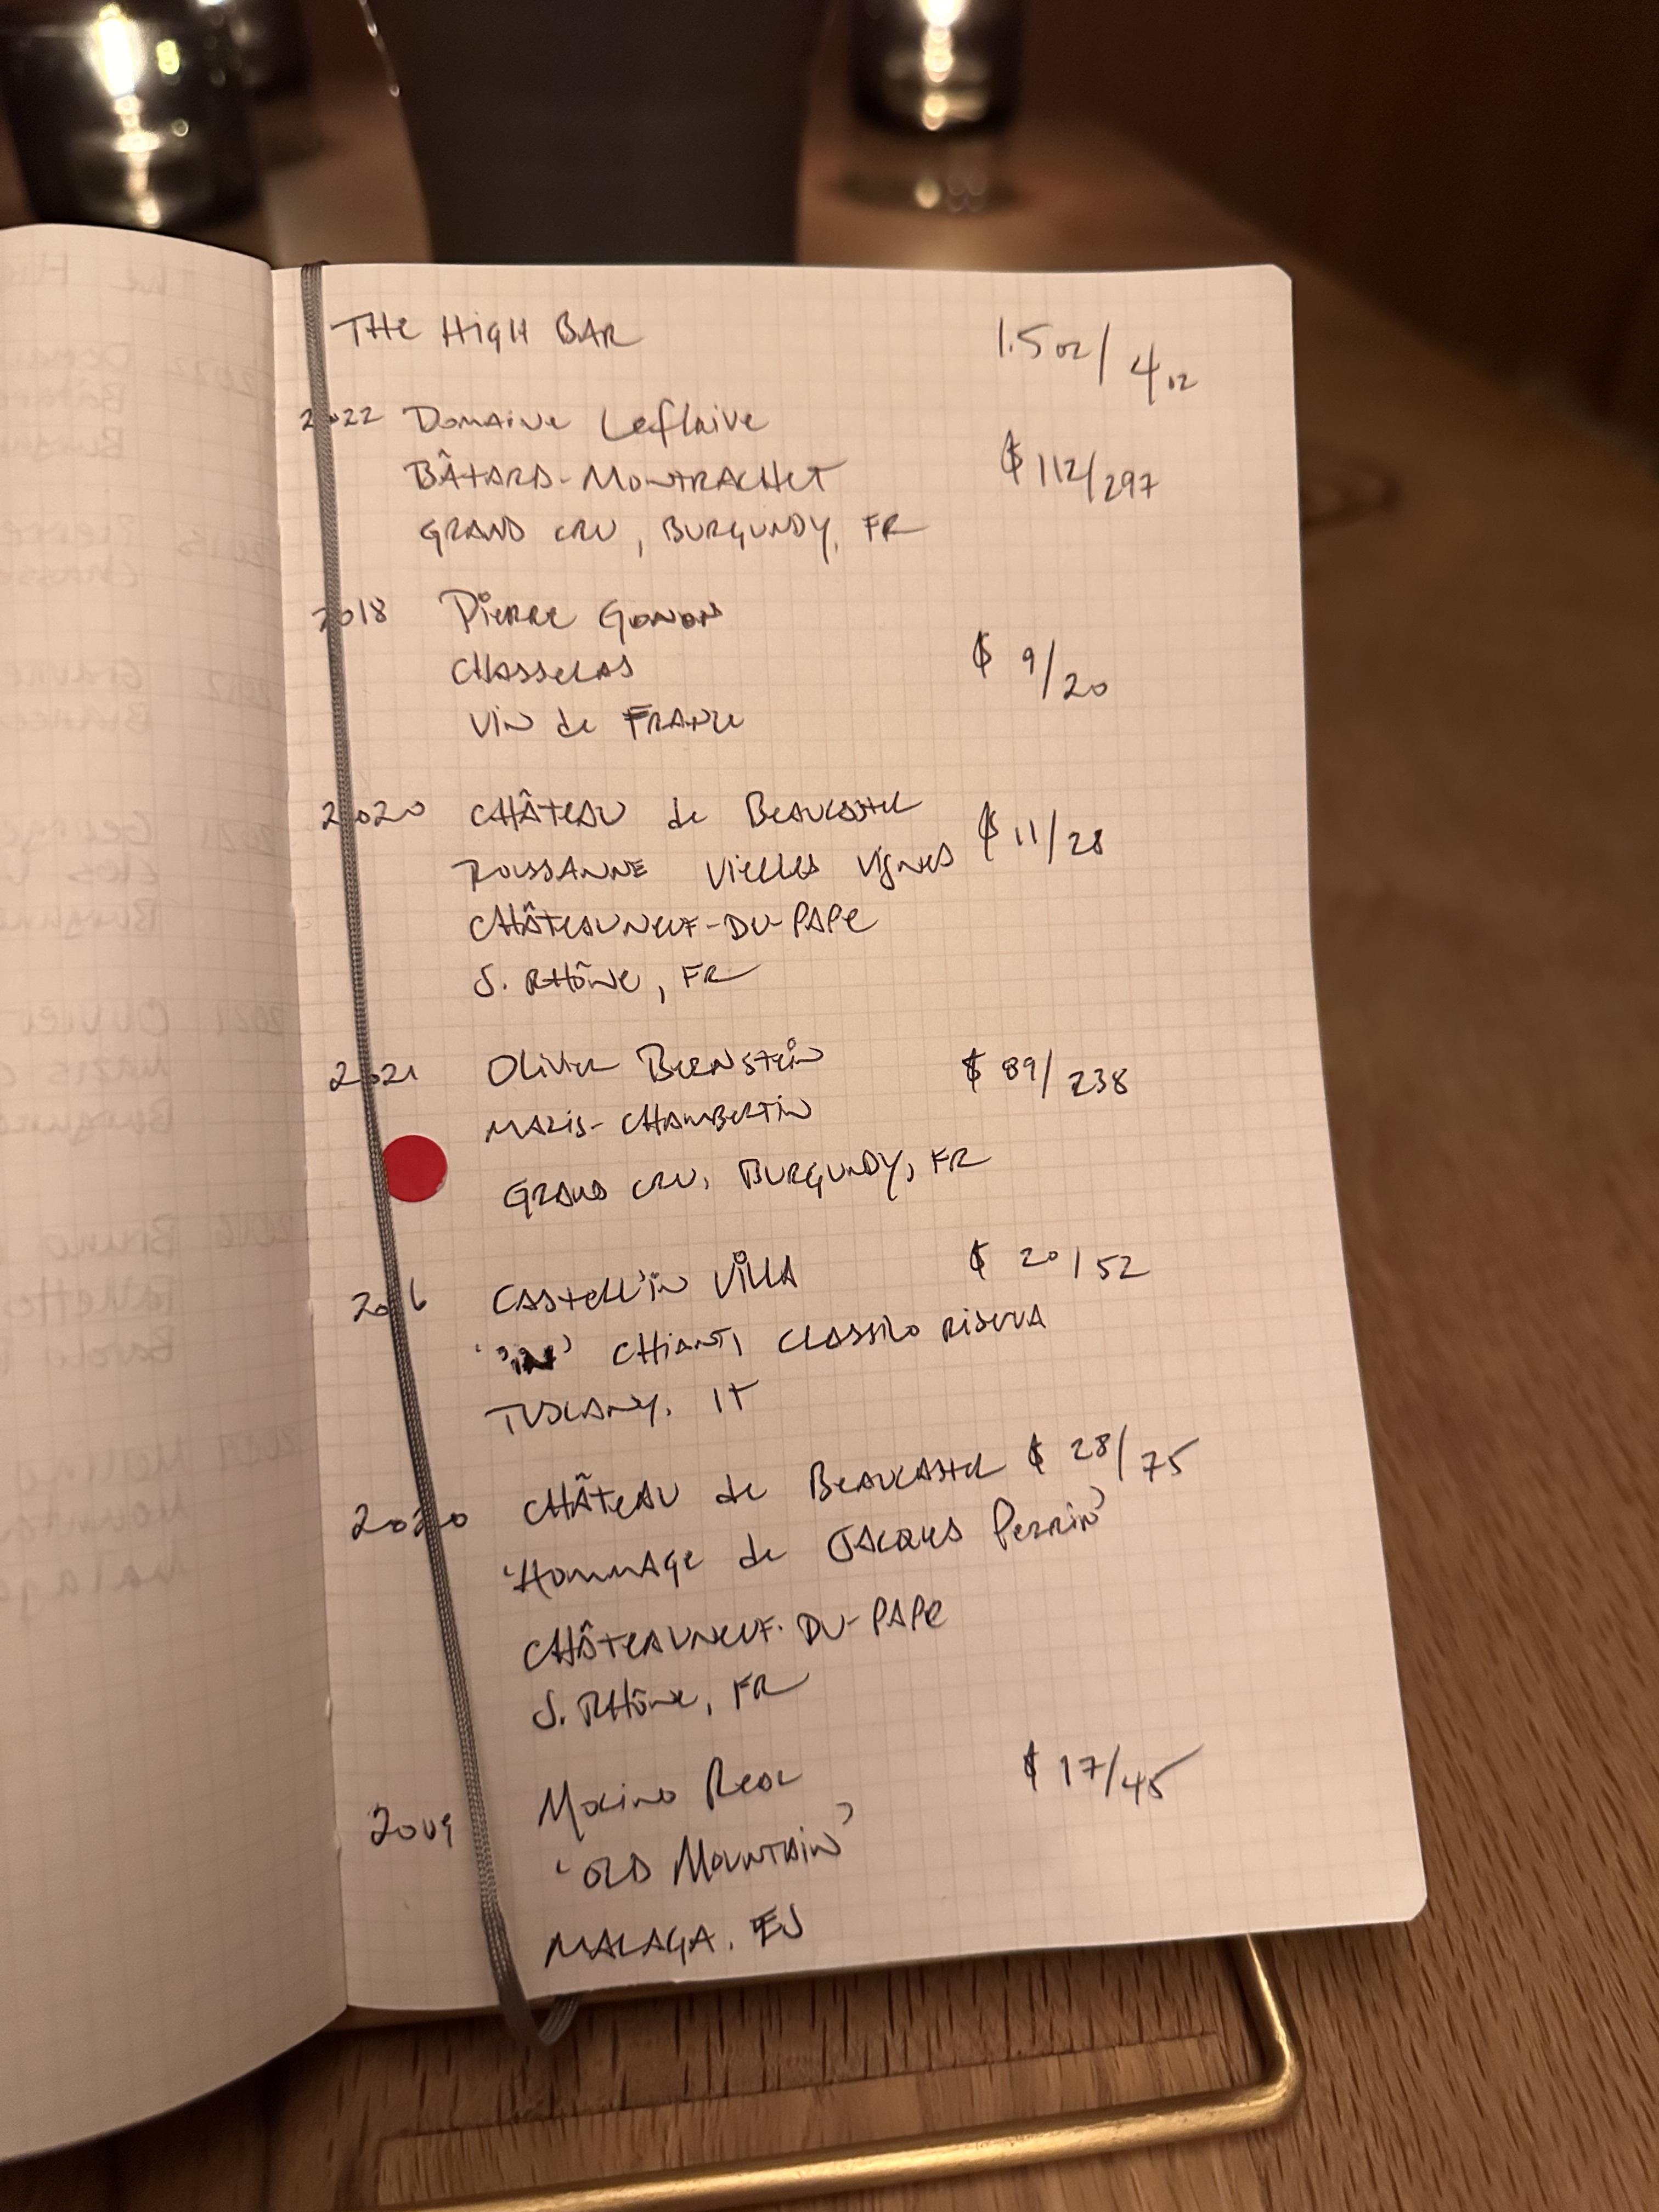 THE HIGH BAR 1.5 oz / 4 oz
2022 Domaine Leflaive
BÂTARD-MONTRACHET $ 112/297
GRAND CRU, BURGUNDY, FR
2018 Pierre Gonon
CHASSELAS $ 9/20
VIN de FRANCE
2020 CHÂTEAU de BEAUCASTEL
ROUSSANNE VIELLES VIGNES $ 11/28
CHÂTEAUNEUF-DU-PAPE
S. RHÔNE, FR
2021 Olivier BERNSTEIN $ 89/238
MAZIS-CHAMBERTIN
GRAND CRU, BURGUNDY, FR
2016 CASTELL'IN VILLA $ 20/52
CHIANTI CLASSICO RISERVA
TUSCANY, IT
2020 CHÂTEAU de BEAUCASTEL $ 28/75
'HOMMAGE de JACQUES PERRIN'
CHÂTEAUNEUF-DU-PAPE
S. RHÔNE, FR
2009 Molino Real $ 17/45
'OLD MOUNTAIN'
MALAGA, ES